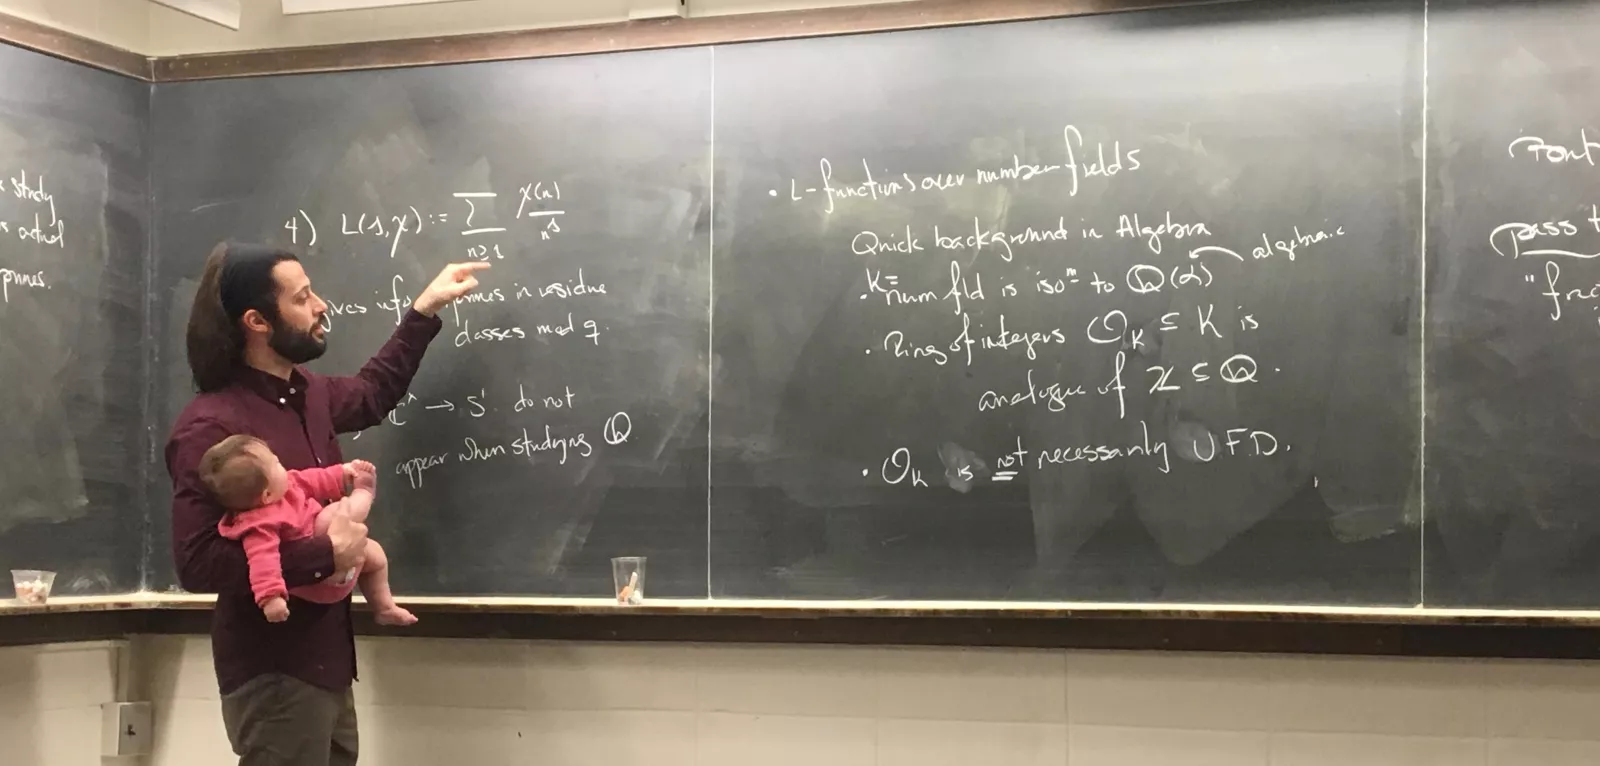 study
actual
primes.
4) L(s,χ) := ∑ χ(n)/n^s
n≥1
gives info primes in residue
classes mod q.
→ S¹ do not
appear when studying ℚ
• L-functions over number fields
Quick background in Algebra
algebraic
• K = num fld is iso^m to ℚ(α)
• Ring of integers O_K ⊆ K is
analogue of ℤ ⊆ ℚ.
• O_K is not necessarily U.F.D.
Pont
pass t
"frac